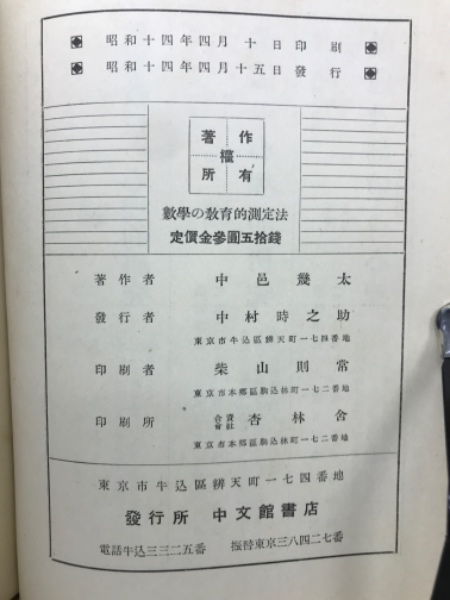 昭和十四年四月十日印刷
昭和十四年四月十五日發行
著作權所有
數學の敎育的測定法
定價金參圓五拾錢
著作者 中邑幾太
發行者 中村時之助
東京市牛込區辨天町一七四番地
印刷者 柴山則常
東京市本鄕區駒込林町一七二番地
印刷所 合資會社 杏林舍
東京市本鄕區駒込林町一七二番地
東京市牛込區辨天町一七四番地
發行所 中文館書店
電話牛込三三二五番 振替東京三八四二七番